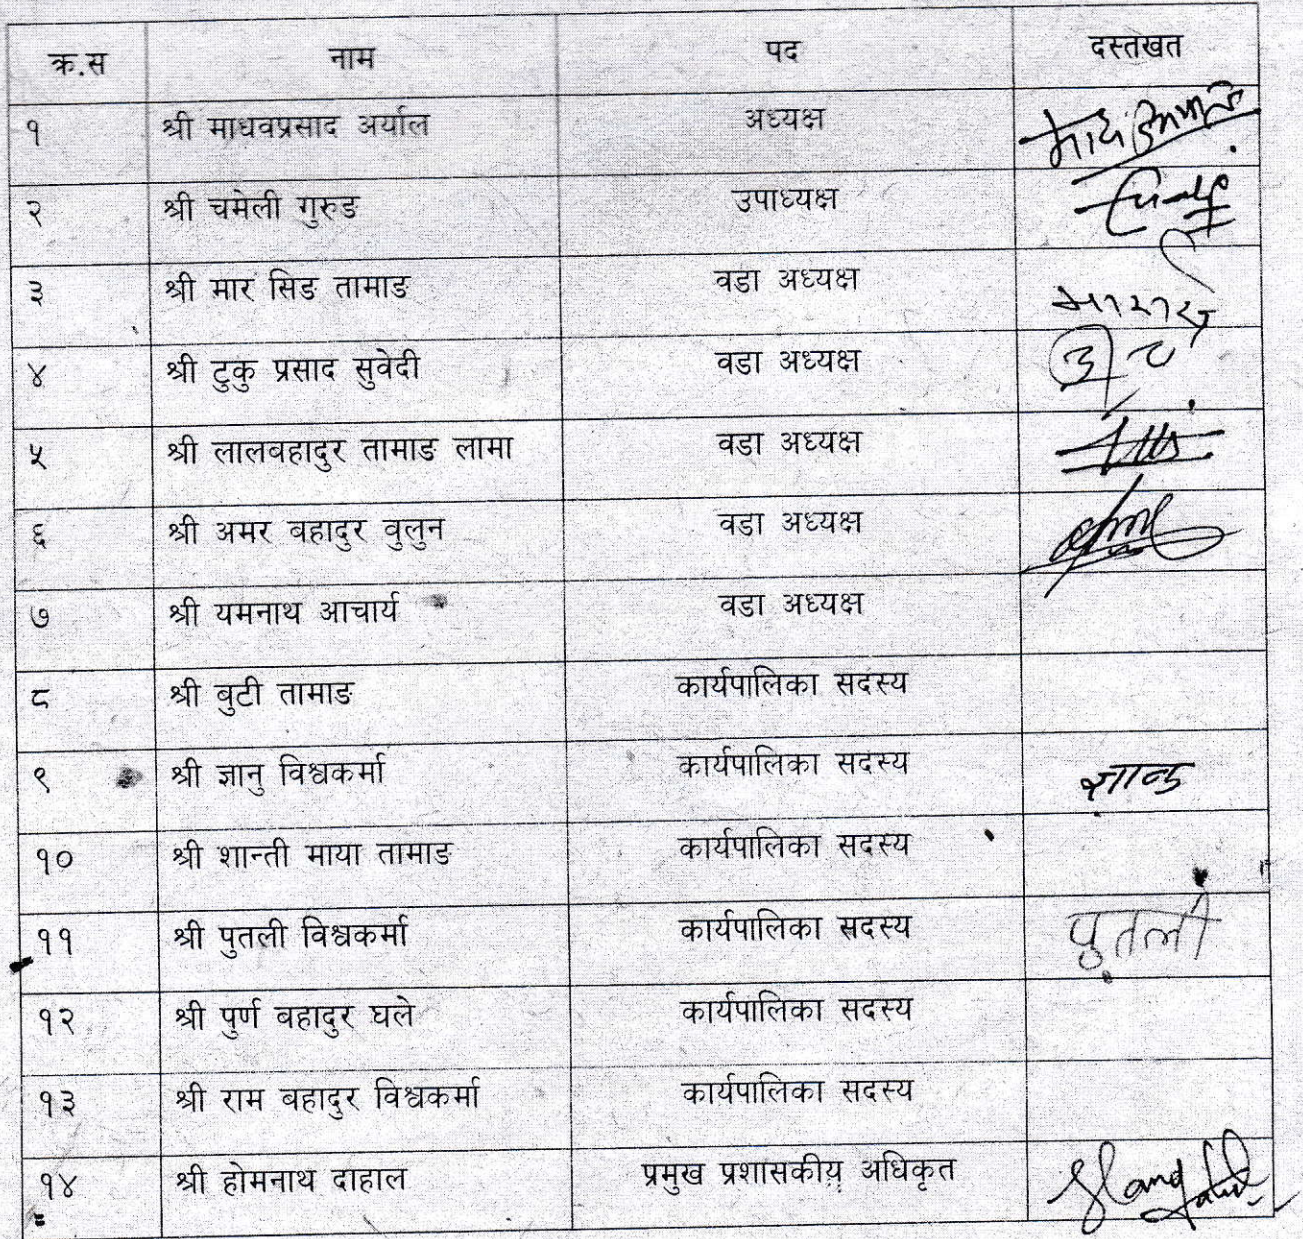 क्र.स नाम पद दस्तखत
१ श्री माधवप्रसाद अर्याल अध्यक्ष
२ श्री चमेली गुरुङ उपाध्यक्ष
३ श्री मार सिङ तामाङ वडा अध्यक्ष
४ श्री टुकु प्रसाद सुवेदी वडा अध्यक्ष
५ श्री लालबहादुर तामाङ लामा वडा अध्यक्ष
६ श्री अमर बहादुर वुलुन वडा अध्यक्ष
७ श्री यमनाथ आचार्य वडा अध्यक्ष
८ श्री बुटी तामाङ कार्यपालिका सदस्य
९ श्री ज्ञानु विश्वकर्मा कार्यपालिका सदस्य
१० श्री शान्ती माया तामाङ कार्यपालिका सदस्य
११ श्री पुतली विश्वकर्मा कार्यपालिका सदस्य पुतली
१२ श्री पुर्ण बहादुर घले कार्यपालिका सदस्य
१३ श्री राम बहादुर विश्वकर्मा कार्यपालिका सदस्य
१४ श्री होमनाथ दाहाल प्रमुख प्रशासकीय अधिकृत